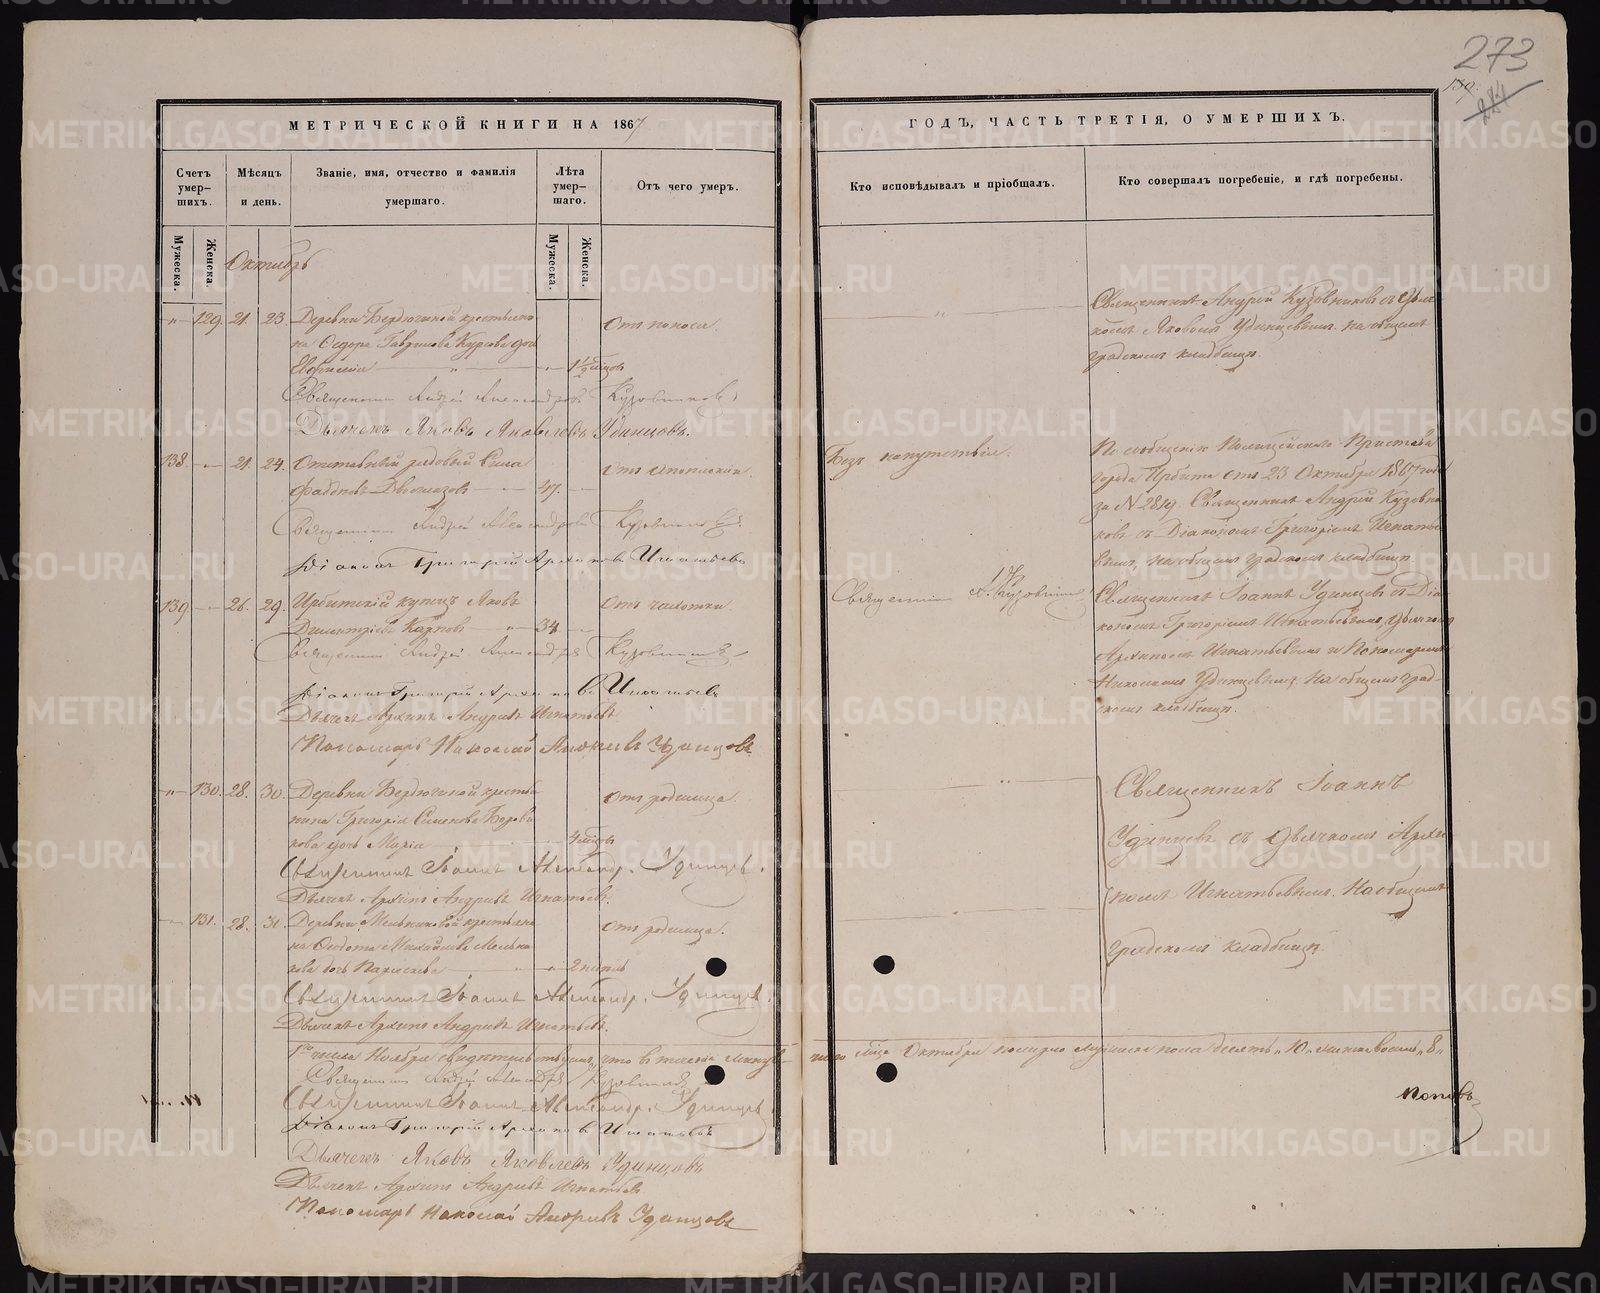 273
МЕТРИЧЕСКОЙ КНИГИ НА 1867
ГОДЪ, ЧАСТЬ ТРЕТІЯ, О УМЕРШИХЪ.
Счетъ умер-шихъ.
Мѣсяцъ и день.
Званіе, имя, отчество и фамилія умершаго.
Лѣта умер-шаго.
Отъ чего умеръ.
Кто исповѣдывалъ и пріобщалъ.
Кто совершалъ погребеніе, и гдѣ погребены.
Мужеска.
Женска.
Мужеска.
Женска.
Октябрь
129. 21. 23. Деревни Бердюгиной крестьяни
на Ѳедора Гаврилова Курсова дочь
Евфимія 1 1/2 мѣсцов
Отъ поноса.
Священникъ Андрей Кузовниковъ съ Дьяч
комъ Яковомъ Удинцевымъ. на общемъ
градскомъ кладбищѣ.
Священникъ Андрей Александровъ Кузовниковъ
Дьячекъ Яковъ Яковлевъ Удинцовъ.
138 21. 24. Отставный рядовый Сила
Фаддѣевъ 47.
Безъ напутствія.
По сообщенію Полицейскаго Пристава
города Ирбити отъ 23 Октября 1867 года
за № 2819. Священникъ Андрей Кузовни
ковъ съ Діакономъ Григоріемъ Игнатье
вымъ, на общемъ градскомъ кладбищѣ.
Священникъ Андрей Александровъ Кузовниковъ
Діаконъ Григорій Архиповъ Игнатьевъ
139 26. 29. Ирбитскій купецъ Яковъ
Димитріевъ Карповъ 34
Отъ чахотки.
Священникъ А. Кузовниковъ
Священникъ Іоаннъ Удинцевъ съ Діа
кономъ Григоріемъ Игнатьевымъ, Дьячкомъ
Архипомъ Игнатьевымъ и Пономаремъ
Николаемъ Удинцевымъ. На общемъ град-
скомъ кладбищѣ.
Священникъ Андрей Александровъ Кузовниковъ
Діаконъ Григорій Архиповъ Игнатьевъ
Дьячекъ Архипъ Андреевъ Игнатьевъ
Пономарь Николай Андреевъ Удинцовъ
130. 28. 30. Деревни Бердюгиной крестья
нина Григорія Семенова Борови
кова дочь Марія 4 мѣсцов
Отъ родимца.
Священникъ Іоаннъ
Удинцевъ съ Дьячкомъ Архи
помъ Игнатьевымъ. На общемъ
градскомъ кладбищѣ.
Священникъ Іоаннъ Александр. Удинцевъ.
Дьячекъ Архипъ Андреевъ Игнатьевъ.
131. 28. 31. Деревни Мельниковой крестьяни
на Ѳедота Михайлова Мельни
кова дочь Параскева 2 недѣль
Отъ родимца.
Священникъ Іоаннъ Александр. Удинцевъ.
Дьячекъ Архипъ Андреевъ Игнатьевъ.
1го числа Ноября свидѣтельствуемъ, что въ теченіи минув
шаго мѣсяца Октября померло мужеска пола десять „10„ женска восемь „8„
Священникъ Андрей Александровъ Кузовниковъ
Священникъ Іоаннъ Александр. Удинцевъ
Поповъ
Діаконъ Григорій Архиповъ Игнатьевъ
Дьячекъ Яковъ Яковлевъ Удинцовъ
Дьячекъ Архипъ Андреевъ Игнатьевъ
Пономарь Николай Андреевъ Удинцовъ
METRIKI.GASO-URAL.RU